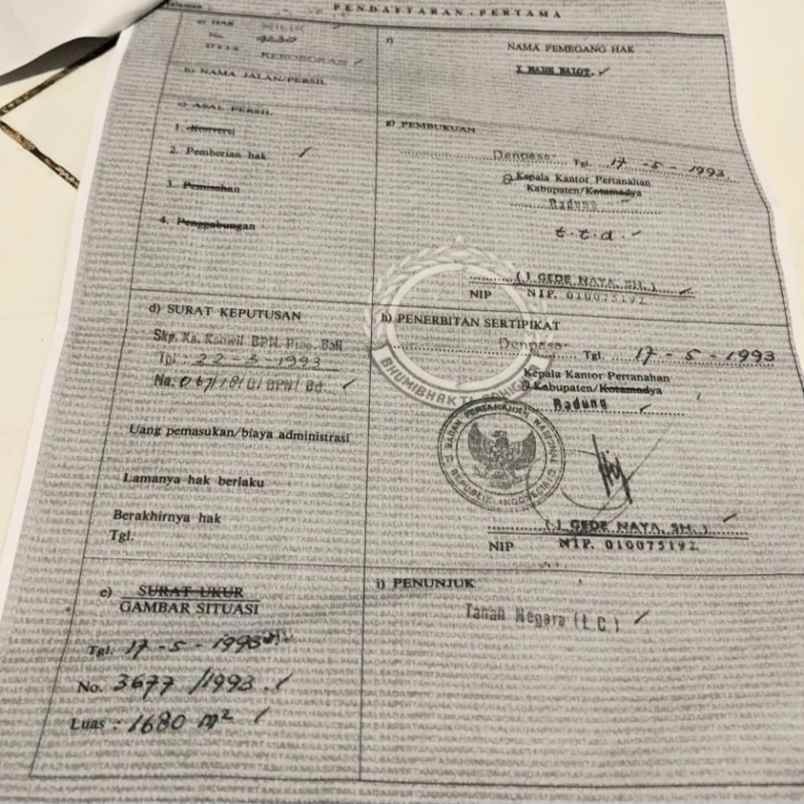 PENDAFTARAN PERTAMA
a) HAK MILIK
No.
DESA KEROBOKAN
b) NAMA JALAN/PERSIL
c) ASAL PERSIL
1. Konversi
2. Pemberian hak
3. Pemisahan
4. Penggabungan
d) SURAT KEPUTUSAN
Skp. Ka. Kanwil BPN. Prop. Bali
Tgl. 22-3-1993
No.
Uang pemasukan/biaya administrasi
Lamanya hak berlaku
Berakhirnya hak
Tgl.
e) SURAT UKUR
GAMBAR SITUASI
Tgl. 17-5-1993
No. 3677/1993.
Luas : 1680 m²
f)
NAMA PEMEGANG HAK
I MADE
g) PEMBUKUAN
Denpasar Tgl. 17-5-1993
Kepala Kantor Pertanahan
Kabupaten/Kotamadya
Badung
t.t.d.
( I GEDE NAYA, SH. )
NIP NIP. 010075192
h) PENERBITAN SERTIPIKAT
Denpasar Tgl. 17-5-1993
Kepala Kantor Pertanahan
Kabupaten/Kotamadya
Badung
BHUMIBHAKTI
BADAN PERTANAHAN NASIONAL
REPUBLIK INDONESIA
( I GEDE NAYA, SH. )
NIP NIP. 010075192
i) PENUNJUK
Tanah Negara (L.C.)